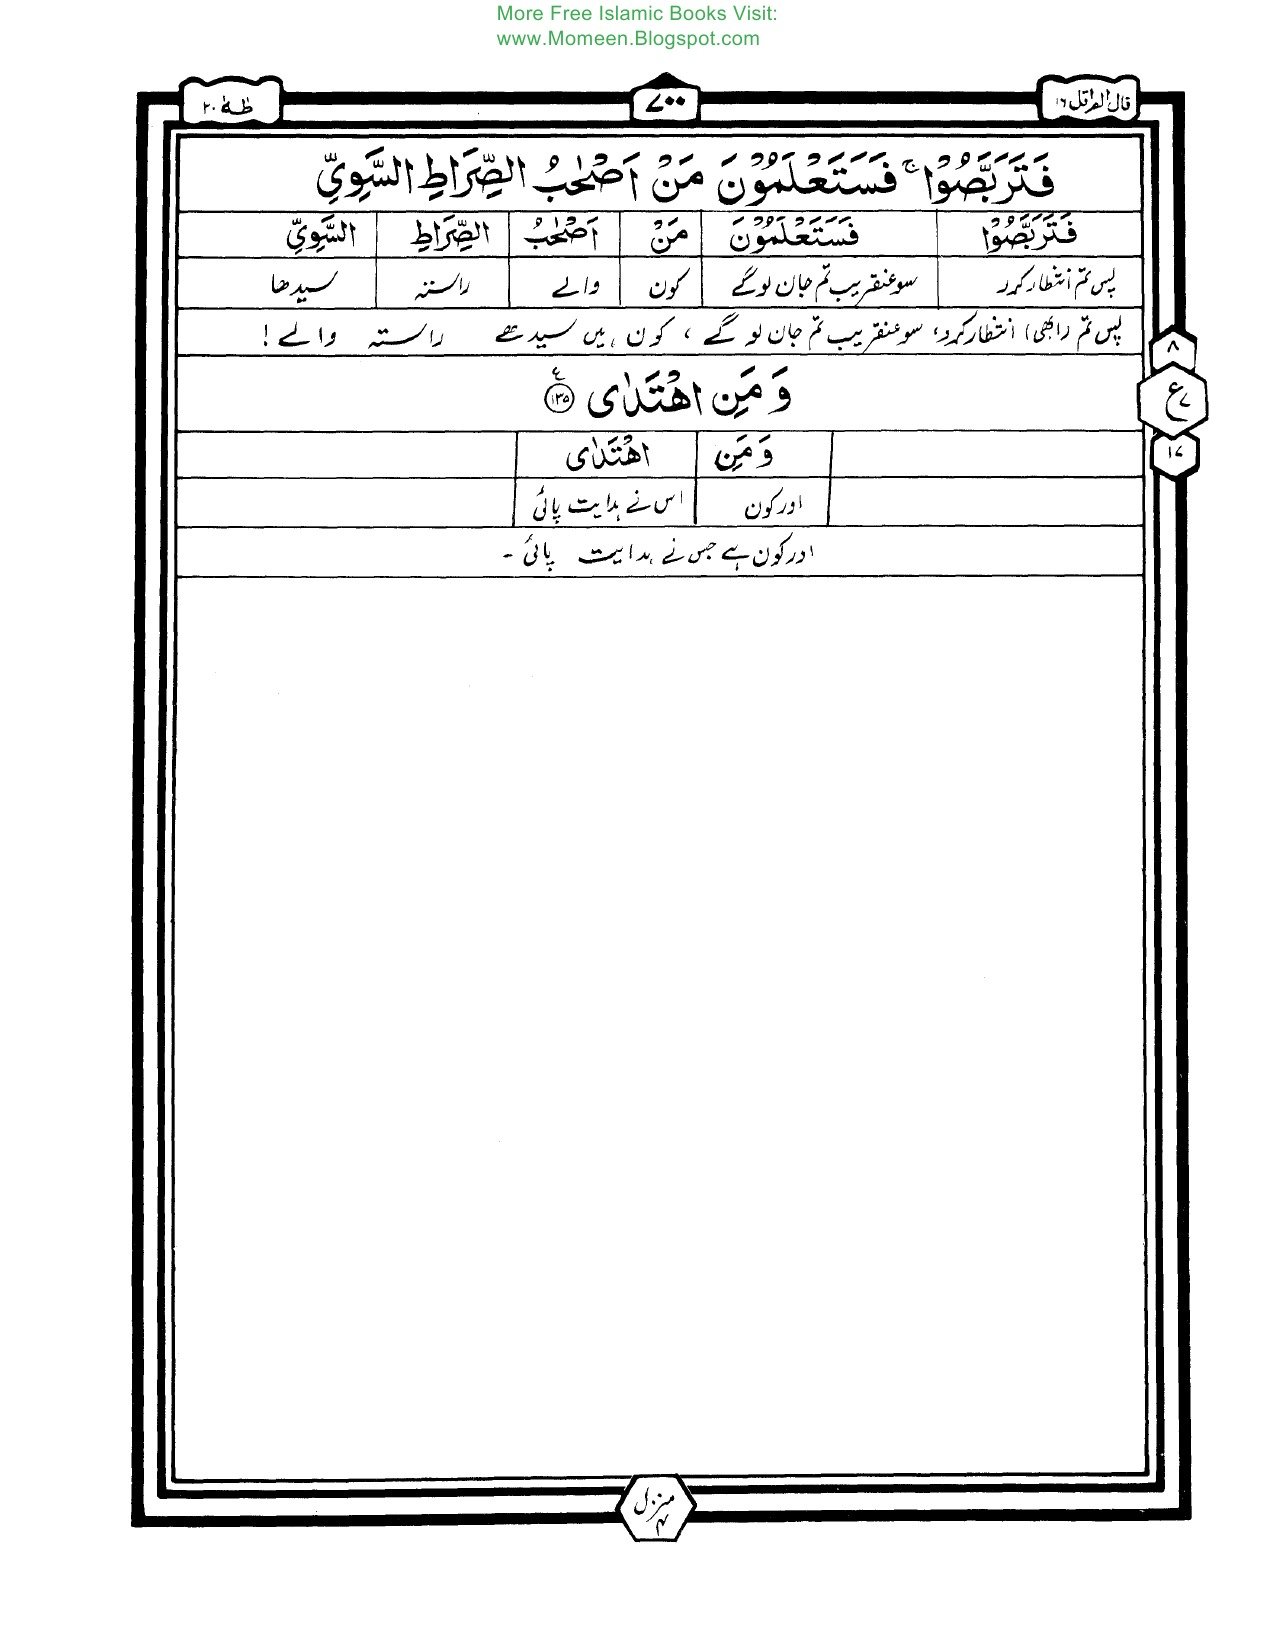 More Free Islamic Books Visit:
www.Momeen.Blogspot.com
قال الم ۱۶ ۷۰۰ طٰهٰ ۲۰
فَتَرَبَّصُوْا ۚ فَسَتَعْلَمُوْنَ مَنْ اَصْحٰبُ الصِّرَاطِ السَّوِيِّ
فَتَرَبَّصُوْا فَسَتَعْلَمُوْنَ مَنْ اَصْحٰبُ الصِّرَاطِ السَّوِيِّ
پس تم انتظار کرو سو عنقریب تم جان لوگے کون والے راستہ سیدھا
پس تم (ابھی) انتظار کرو، سو عنقریب تم جان لو گے، کون ہیں سیدھے راستہ والے!
۸
ع ۷
۱۷
وَ مَنِ اهْتَدٰى ۝۱۳۵ ع
وَ مَنِ اهْتَدٰى
اور کون اس نے ہدایت پائی
اور کون ہے جس نے ہدایت پائی -
منزل ۴